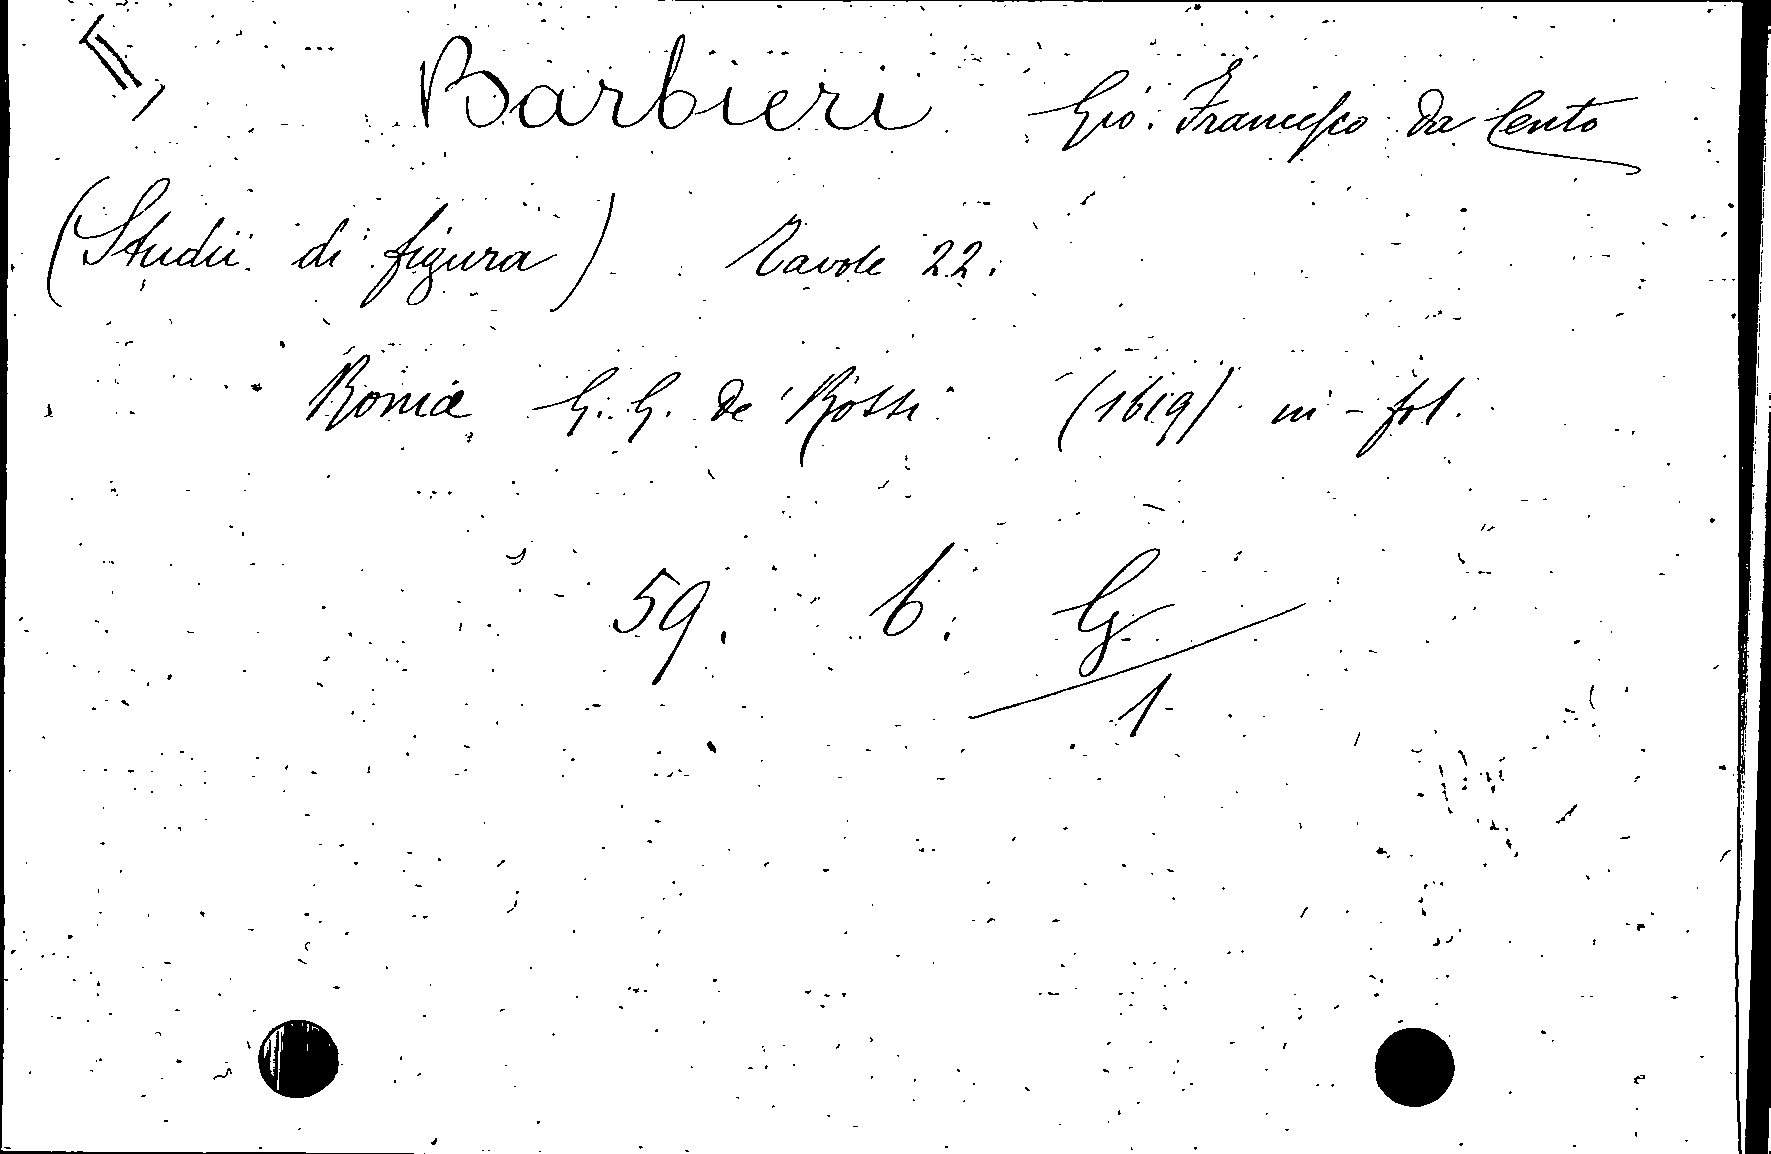 Barbieri Gio. Francesco da Cento
(Studii di figura) Tavole 22.
Romæ G. G. de' Rossi (1619) in-fol.
59. 6. G
1